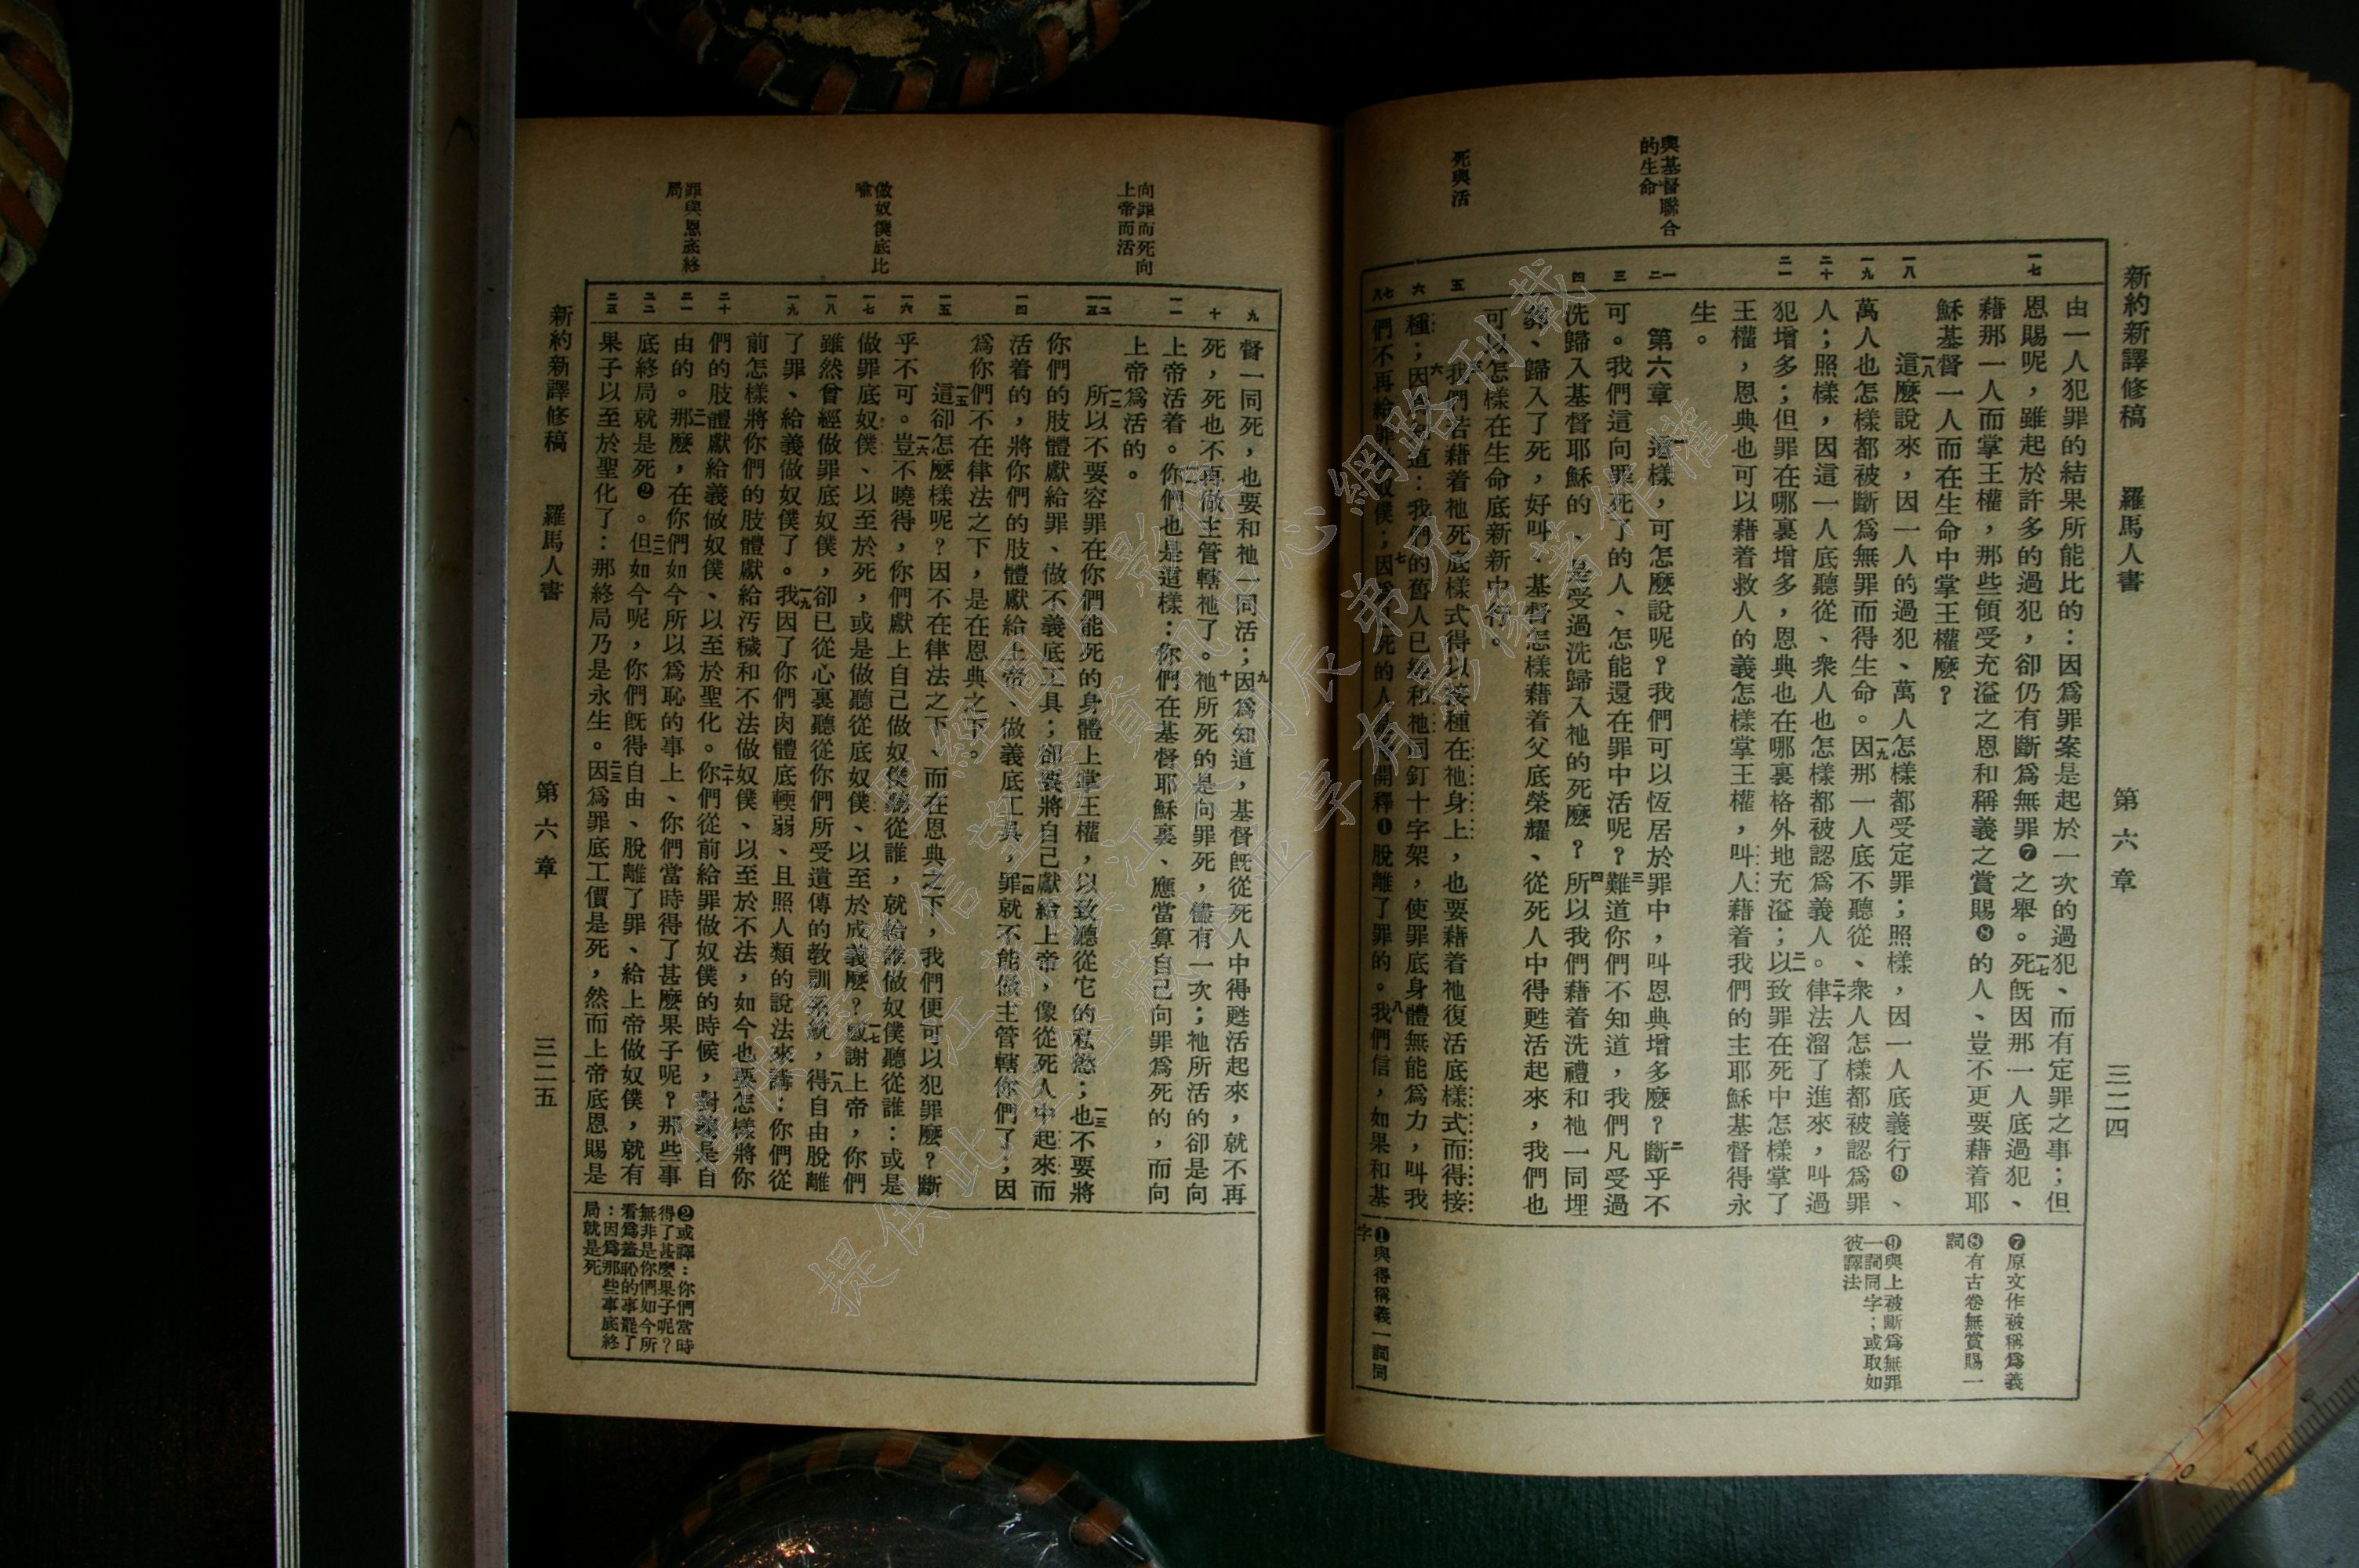 新約新譯修稿　羅馬人書　第六章　三二四
由一人犯罪的結果所能比的：因爲罪案是起於一次的過犯、而有定罪之事；但
恩賜呢，雖起於許多的過犯，卻仍有斷爲無罪❼之舉。一七死旣因那一人底過犯、
藉那一人而掌王權，那些領受充溢之恩和稱義之賞賜❽的人、豈不更要藉着耶
穌基督一人而在生命中掌王權麼？
一八這麼說來，因一人的過犯、萬人怎樣都受定罪；照樣，因一人底義行❾、
萬人也怎樣都被斷爲無罪而得生命。一九因那一人底不聽從、衆人怎樣都被認爲罪
人；照樣，因這一人底聽從、衆人也怎樣都被認爲義人。二十律法溜了進來，叫過
犯增多；但罪在哪裏增多，恩典也在哪裏格外地充溢；二一以致罪在死中怎樣掌了
王權，恩典也可以藉着救人的義怎樣掌王權，叫人藉着我們的主耶穌基督得永
生。
第六章　一這樣，可怎麼說呢？我們可以恆居於罪中，叫恩典增多麼？二斷乎不
可。我們這向罪死了的人、怎能還在罪中活呢？三難道你們不知道，我們凡受過
洗歸入基督耶穌的、是受過洗歸入祂的死麼？四所以我們藉着洗禮和祂一同埋
葬、歸入了死，好叫、基督怎樣藉着父底榮耀、從死人中得甦活起來，我們也
可以怎樣在生命底新新中行。
五我們若藉着祂死底樣式得以接種在祂身上，也要藉着祂復活底樣式而得接
種；六因道：我們的舊人已經和祂同釘十字架，使罪底身體無能爲力，叫我
們不再給罪奴僕；七因死的人開釋❶脫離了罪的。八我們信，如果和基
一七
一八
一九
二十
二一
一二
三
四
五
六
七八
與基督聯合
的生命
死與活
❼原文作被稱爲義
❽有古卷無賞賜一
詞
❾與上被斷爲無罪
一詞同字；或取如
彼譯法
❶與得稱義一詞同
字
督一同死，也要和祂一同活；九因爲知道，基督旣從死人中得甦活起來，就不再
死，死也不再做主管轄祂了。十祂所死的是向罪死，儘有一次；祂所活的卻是向
上帝活着。一一你們也是這樣：你們在基督耶穌裏、應當算自己向罪爲死的，而向
上帝爲活的。
一二所以不要容罪在你們能死的身體上掌王權，以致聽從它的私慾；一三也不要將
你們的肢體獻給罪、做不義底工具；卻要將自己獻給上帝，像從死人中起來而
活着的，將你們的肢體獻給上帝、做義底工具，一四罪就不能做主管轄你們了；因
爲你們不在律法之下，是在恩典之下。
一五這卻怎麼樣呢？因不在律法之下、而在恩典之下，我們便可以犯罪麼？斷
乎不可。一六豈不曉得，你們獻上自己做奴僕聽從誰，就給誰做奴僕聽從誰：或是
做罪底奴僕、以至於死，或是做聽從底奴僕、以至於成義麼？一七感謝上帝，你們
雖然曾經做罪底奴僕，卻已從心裏聽從你們所受遺傳的教訓系統，一八得自由脫離
了罪、給義做奴僕了。一九我因了你們肉體底輭弱、且照人類的說法來講：你們從
前怎樣將你們的肢體獻給汚穢和不法做奴僕、以至於不法，如今也要怎樣將你
們的肢體獻給義做奴僕、以至於聖化。二十你們從前給罪做奴僕的時候，對義是自
由的。二一那麼，在你們如今所以爲恥的事上、你們當時得了甚麼果子呢？那些事
底終局就是死❷。二二但如今呢，你們旣得自由、脫離了罪、給上帝做奴僕，就有
果子以至於聖化了：那終局乃是永生。二三因爲罪底工價是死，然而上帝底恩賜是
九
十
一一
一二
一三
一四
一五
一六
一七
一八
一九
二十
二一
二二
二三
向罪而死向
上帝而活
做奴僕底比
喻
罪與恩底終
局
❷或譯：你們當時
得了甚麼果子呢？
無非是你們如今所
看爲羞恥的事罷了
：因爲那些事底終
局就是死
新約新譯修稿　羅馬人書　第六章　三二五